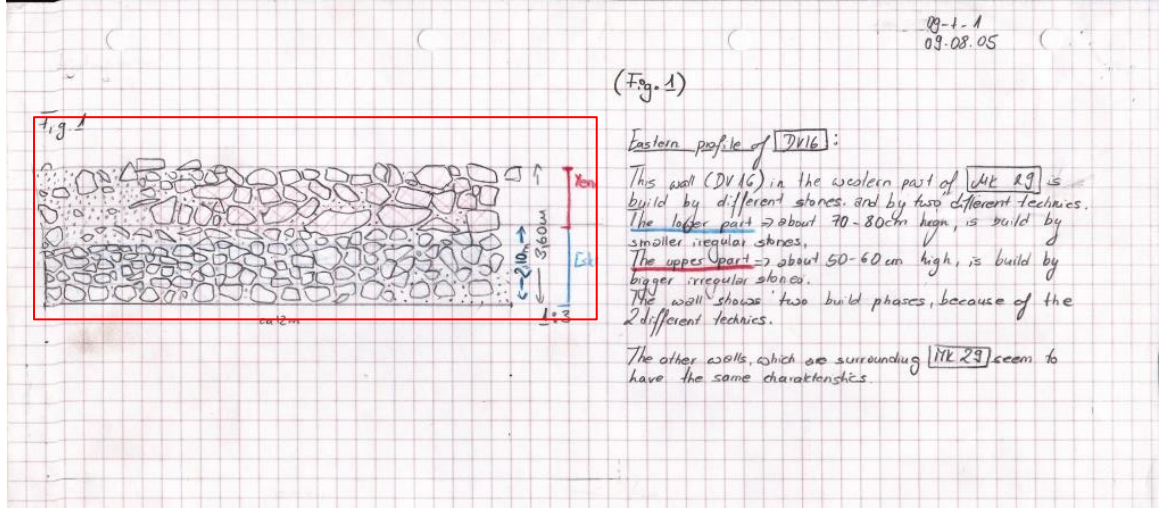 09-1-1
09.08.05
(Fig. 1)
Fig. 1
Yeni
Esk
2,10m
3,60m
1:3
ca 12m
Eastern profile of DV16:
This wall (DV16) in the western part of MK 29 is
build by different stones. and by two different technics.
The lower part => about 70-80cm hegn, is build by
smaller iregular stones,
The upper part => about 50-60 cm high, is build by
bigger irregular stones.
The wall shows two build phases, because of the
2 different technics.
The other walls, which are surrounding MK 29 seem to
have the same charakteristics.